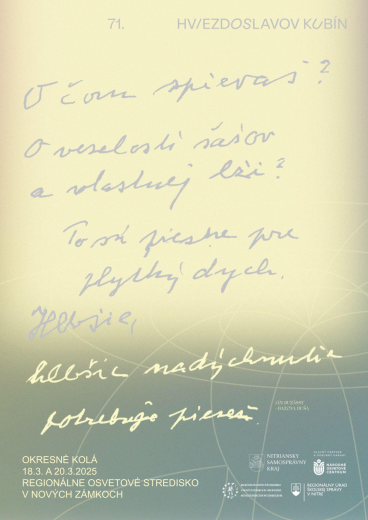 71. HVIEZDOSLAVOV KUBÍN
O čom spievaš?
O veselosti šašov
a vlastnej lži?
To sú piesne pre
plytký dych.
Hlbšie,
hlbšie nadýchnutie
potrebuje pieseň.
OKRESNÉ KOLÁ
18.3. A 20.3.2025
REGIONÁLNE OSVETOVÉ STREDISKO
V NOVÝCH ZÁMKOCH
NITRIANSKY
SAMOSPRÁVNY
KRAJ
NÁRODNÉ
OSVETOVÉ
CENTRUM
REGIONÁLNY ÚRAD
ŠKOLSKEJ SPRÁVY
V NITRE